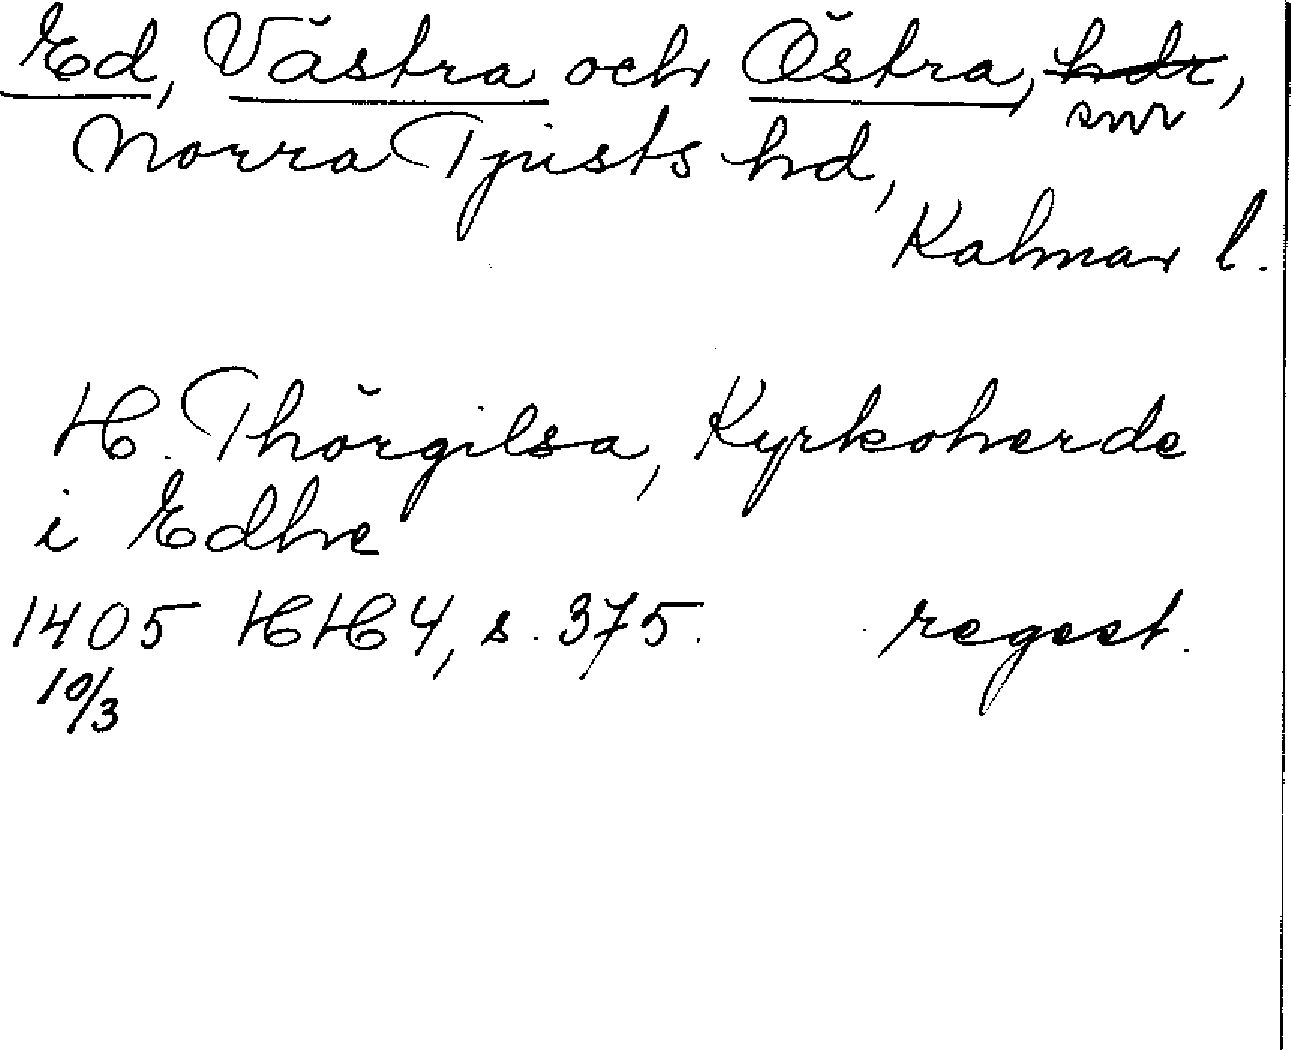 Ed, Västra och Östra, hdr,
snr
Norra Tjusts hd,
Kalmar l.
H. Thörgilsa, Kyrkoherde
i Edhe
1405 HH 4, s. 375. regest.
10/3